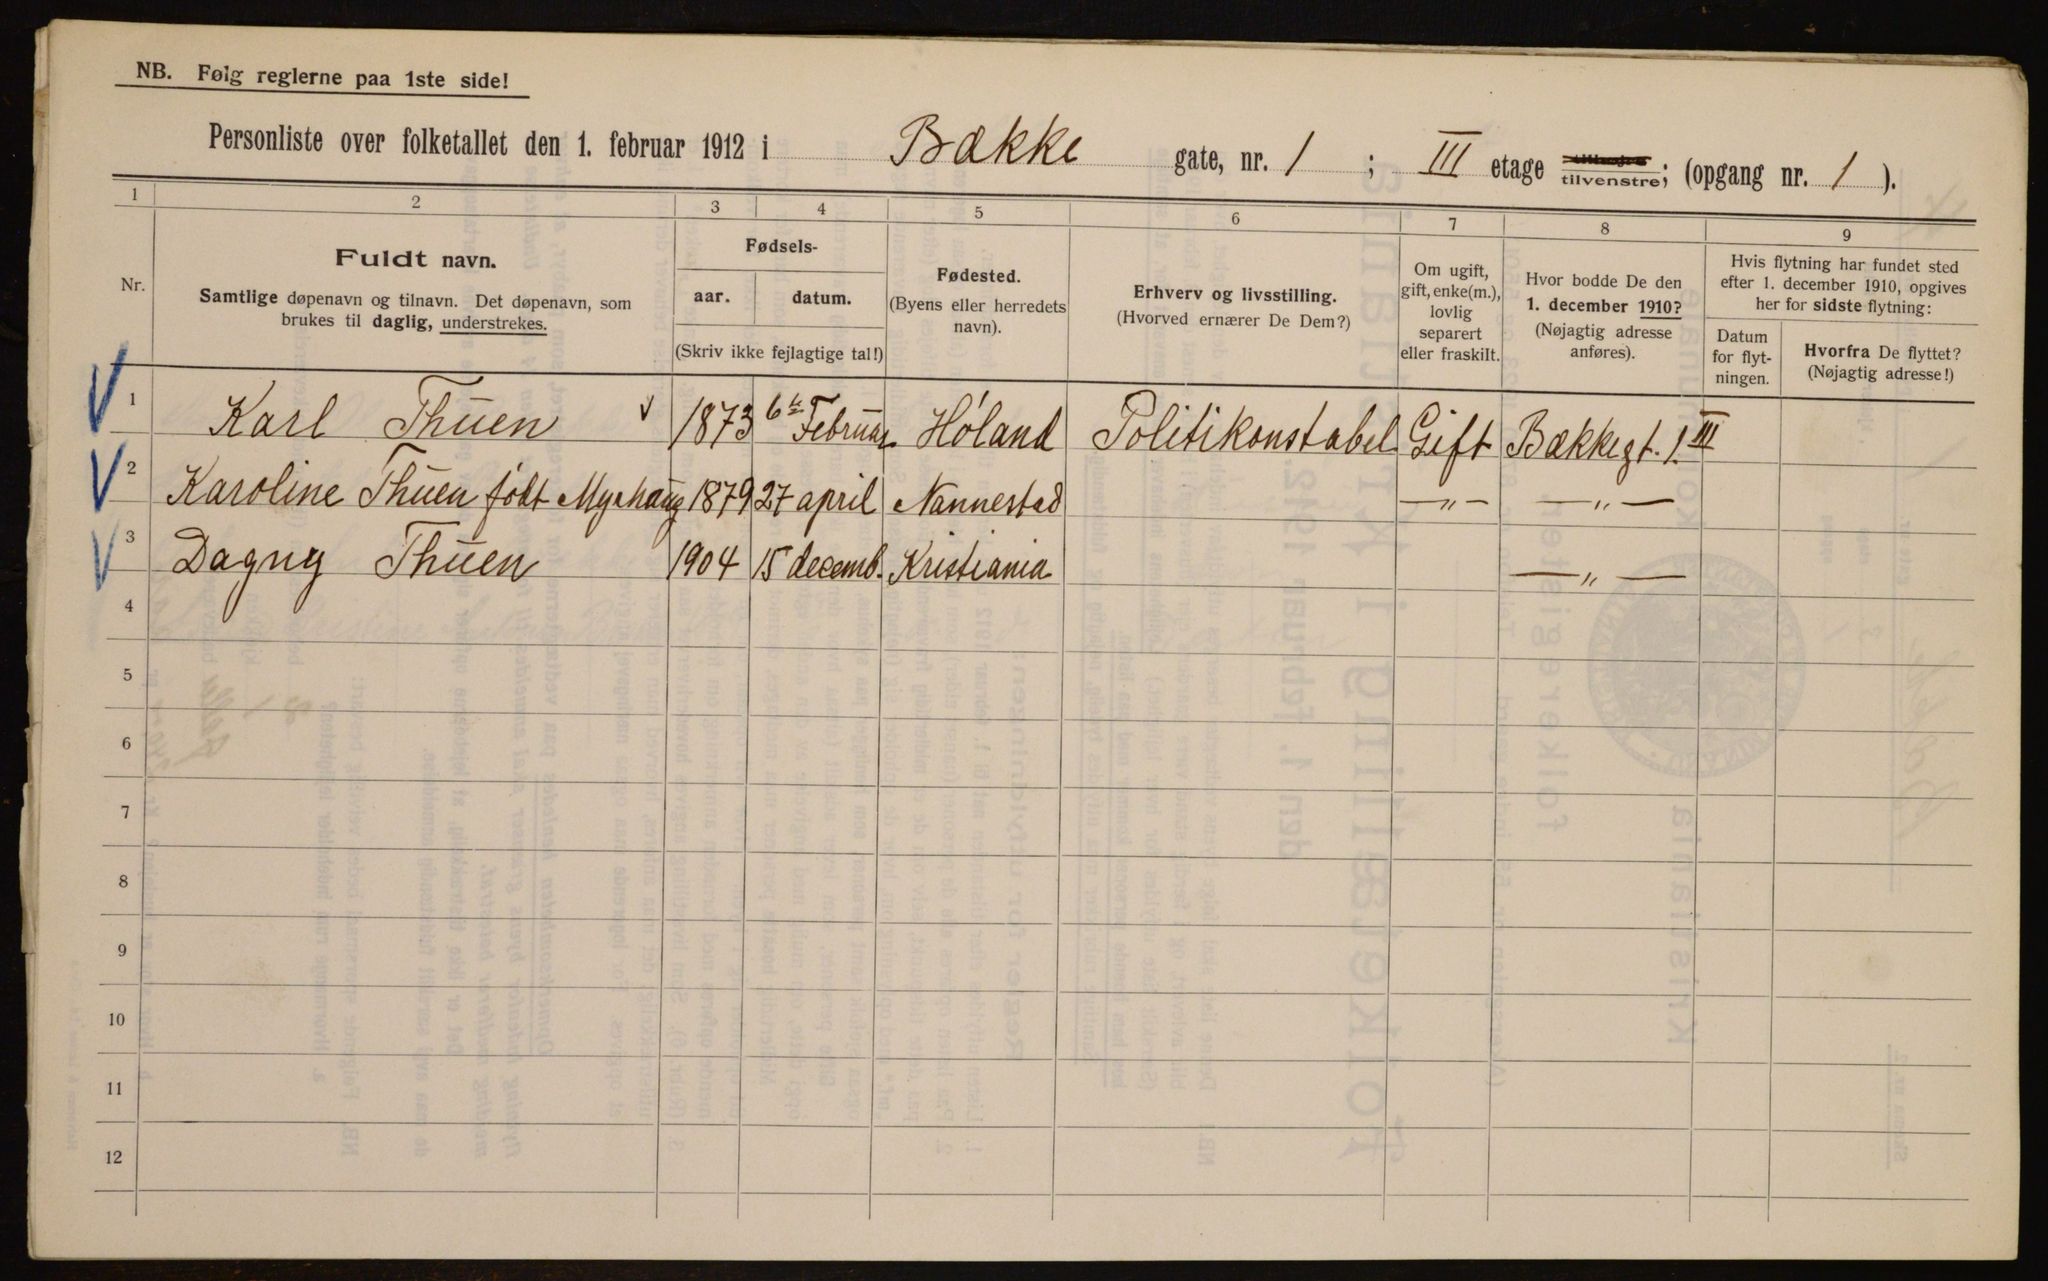 NB. Følg reglerne paa 1ste side!
Personliste over folketallet den 1. februar 1912 i Bække gate, nr. 1 ; III etage tilhøjre tilvenstre; (opgang nr. 1 ).
1 2 3 4 5 6 7 8 9
Nr.
Fuldt navn.
Samtlige døpenavn og tilnavn. Det døpenavn, som
brukes til daglig, understrekes.
Fødsels-
aar. datum.
(Skriv ikke fejlagtige tal!)
Fødested.
(Byens eller herredets
navn).
Erhverv og livsstilling.
(Hvorved ernærer De Dem?)
Om ugift,
gift, enke(m.),
lovlig
separert
eller fraskilt.
Hvor bodde De den
1. december 1910?
(Nøjagtig adresse
anføres).
Hvis flytning har fundet sted
efter 1. december 1910, opgives
her for sidste flytning:
Datum
for flyt-
ningen.
Hvorfra De flyttet?
(Nøjagtig adresse!)
1 Karl Thuen 1873 6te Februar Høland Politikonstabel Gift Bækkegt. 1. III
2 Karoline Thuen født Myrhaug 1879 27 april Nannestad —„— —„—
3 Dagny Thuen 1904 15 decemb. Kristiania —„—
4
5
6
7
8
9
10
11
12